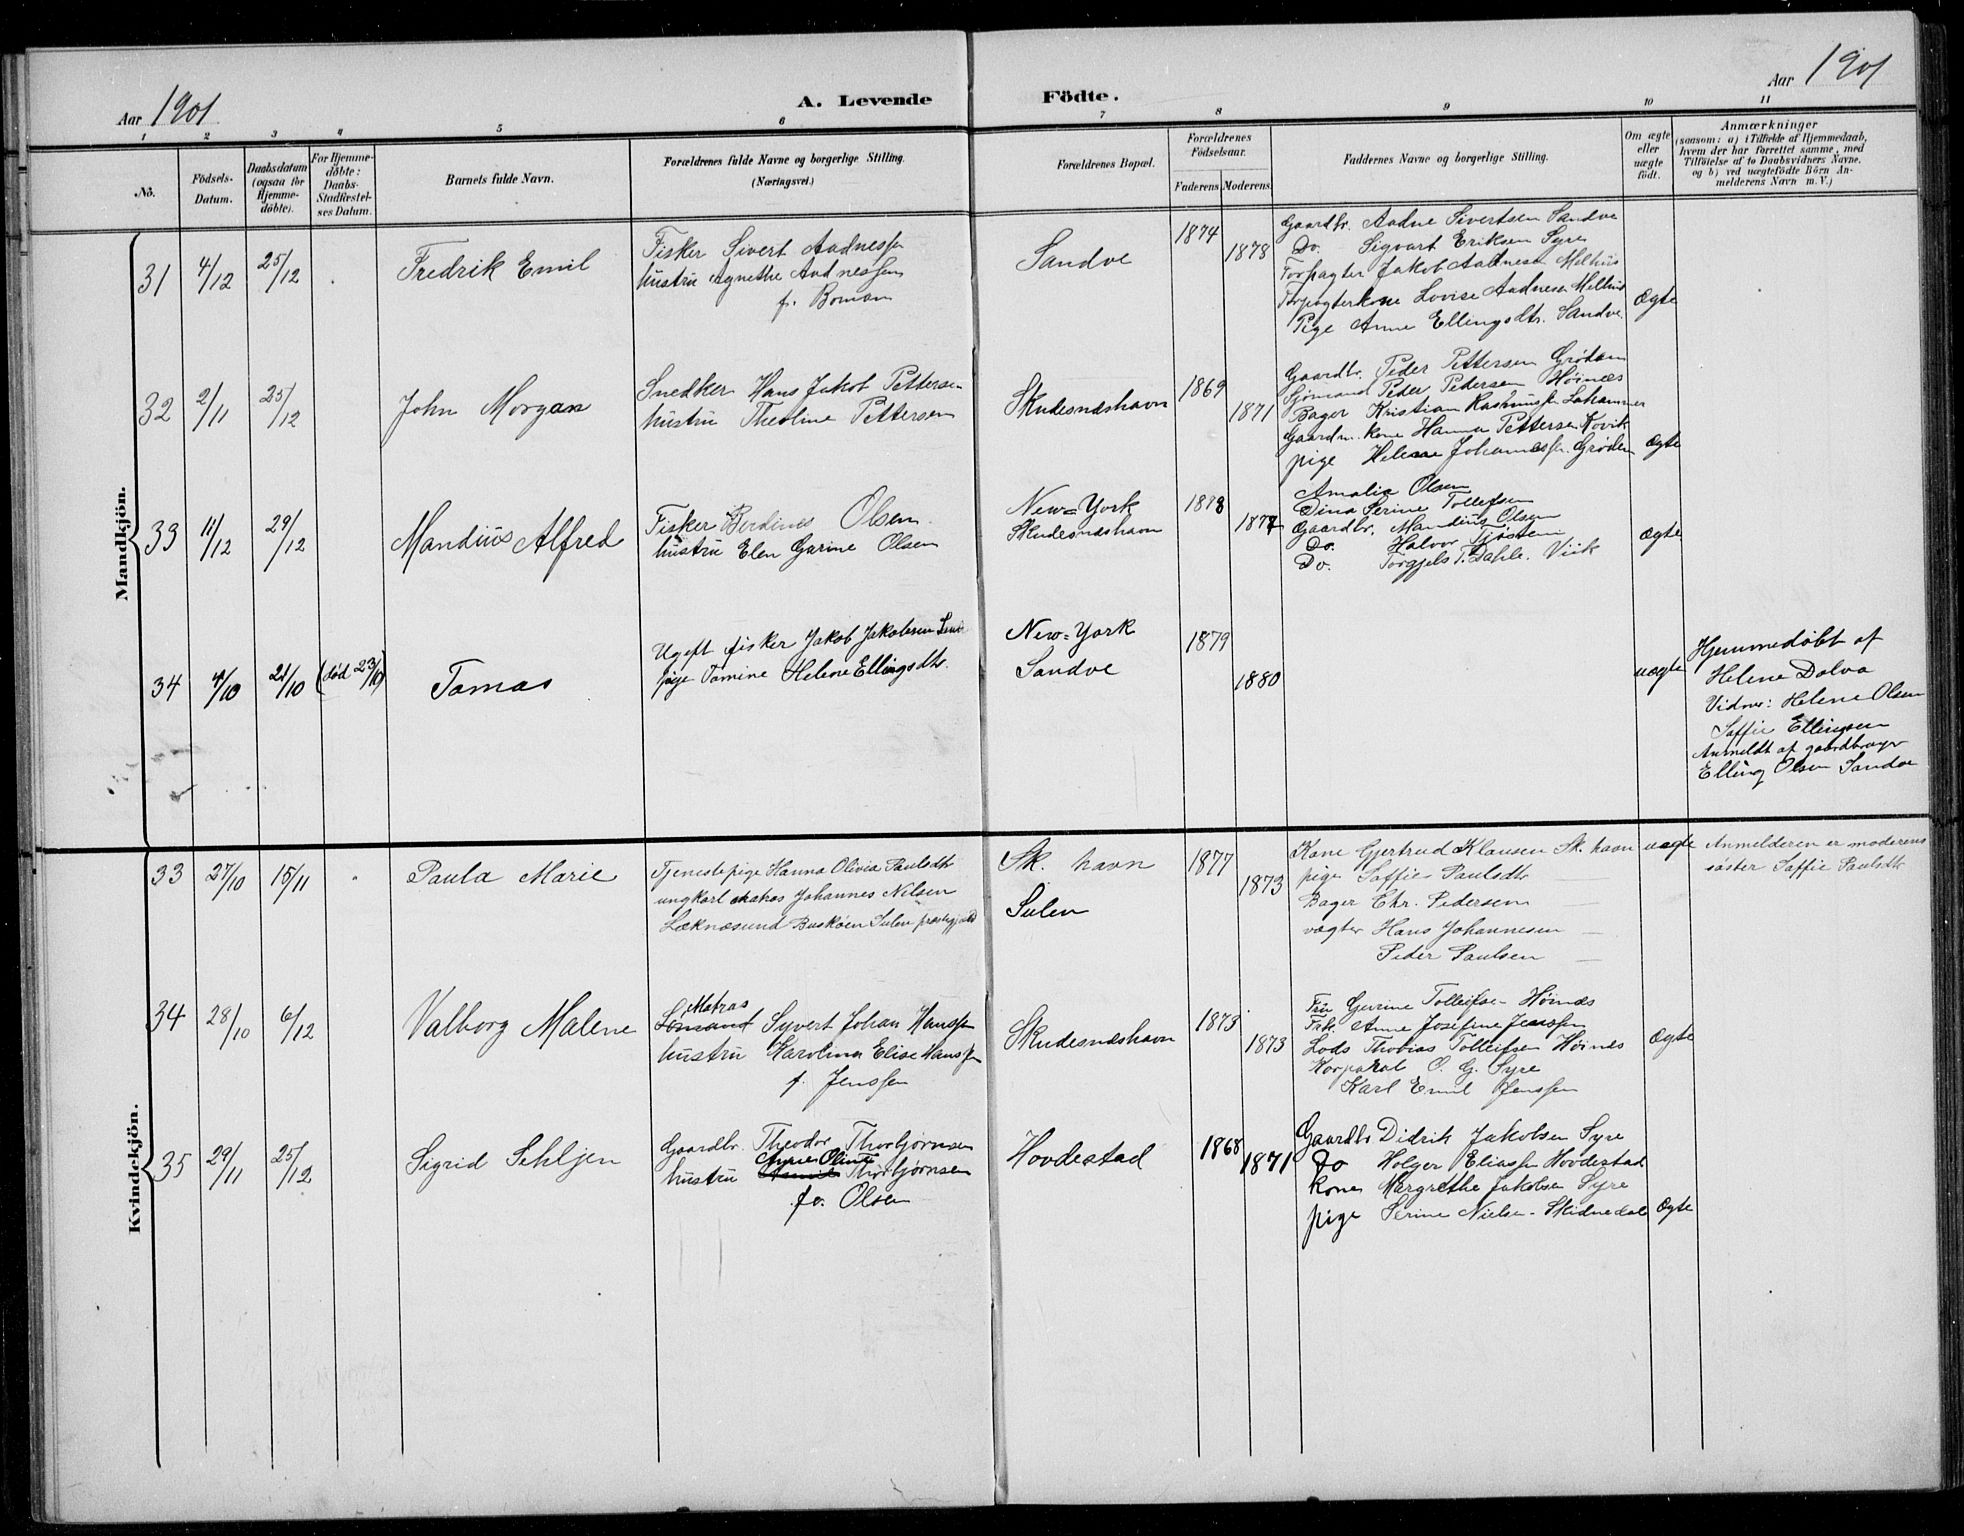 Aar 1901
A. Levende Födte.
Aar 1901
1 2 3 4 5 6 7 8 9 10 11
No.
Födsels-Datum.
Daabsdatum (ogsaa for Hjemme-döbte).
For Hjemme-döbte: Daabs-Stadfestel-ses Datum.
Barnets fulde Navn.
Forældrenes fulde Navne og borgerlige Stilling. (Næringsvei.)
Forældrenes Bopæl.
Forældrenes Födselsaar.
Faderens. Moderens.
Faddernes Navne og borgerlige Stilling.
Om ægte eller uægte födt.
Anmærkninger
(saasom: a) i Tilfælde af Hjemmedaab, hvem der har forrettet samme, med Tilföielse af to Daabsvidners Navne, og b) ved uægtefödte Börn An-melderens Navn m. V.)
Mandkjön.
31 4/12 25/12 Fredrik Emil
Fisker Sivert Aadnessen
hustru Agnethe Aadnessen
f. Boman
Sandve
1874 1878
Gaardbr. Aadne Sivertsen Sandve
Do. Sigvart Eriksen Syre
Forpagter Jakob Aadnesen Melhus
Forpagterkone Lovise Aadnesen Melhus
Pige Anne Ellingsdtr. Sandve.
Ægte
32 2/11 25/12 John Morgan
Snedker Hans Jakob Pettersen
hustru Theoline Pettersen
Skudesnæshavn
1869 1871
Gaardbr. Peder Pettersen Grødem
Sjömand Peder Pedersen Høinæs
Bager Kristian Rasmussen Lahammer
Gaardm. kone Hanna Pettersen Kovik
pige Helene Johannessen Grødem
Ægte
33 11/12 29/12 Mandius Alfred
Fisker Berdines Olsen
hustru Elen Gurine Olsen
New-York
Skudesnæshavn
1877
Amalie Olsen
Dina Serine Tollefsen
Gaardbr. Mandius Olsen
Do. Halvor
Do. Torgjels T. Dahle. Viik
Ægte
34 4/10 21/10 (död 23/10) Tomas
Ugift fisker Jakob Jakobsen
pige Tomine Helene Ellingsdtr.
New-York
Sandve
1879 1880
uægte
Hjemmedöbt af
Helene Dalva
Vidner: Helene Olsen
Saffie Ellingsen
Anmeldt af gaardbruger
Elling Olsen Sandve
Kvindekjön.
33 27/10 15/11 Paula Marie
Tjenestepige Hanna Olivia Paulsdtr
ungkarl matros Johannes Nilsen
Læknæsund Buskøen Sulen præstegjeld
Sk. havn
Sulen
1877 1873
Kone Gjertrud Klausen Sk. havn
pige Saffie Paulsdtr —
Bager Chr. Pedersen —
vægter Hans Johannesen —
Peder Paulsen —
uægte
Anmelderen er moderens
söster Saffie Paulsdtr
34 28/10 6/12 Valborg Malene
Matros
Sömand Syvert Johan Hanssen
hustru Karolina Elise Hanssen
f. Jenssen
Skudesnæshavn
1873 1873
Fru Gurine Tolleifsen Høinæs
Frk. Anne Josefine Jenssen
Lods Thobias Tolleifsen Høinæs
Korporal O. G. Syre
Karl Emil Jenssen
Ægte
35 29/11 25/12 Sigrid Sehljen
Gaardbr. Theodor Thorbjørnsen
Olina
hustru Thorbjørnsen
fo. Olsen
Hovdestad
1868 1871
Gaardbr Didrik Jakobsen Syre
Do Holger Eliassen Hovdestad
kone Margrethe Jakobsen Syre
pige Serine Nielsen Skidnedal
Ægte